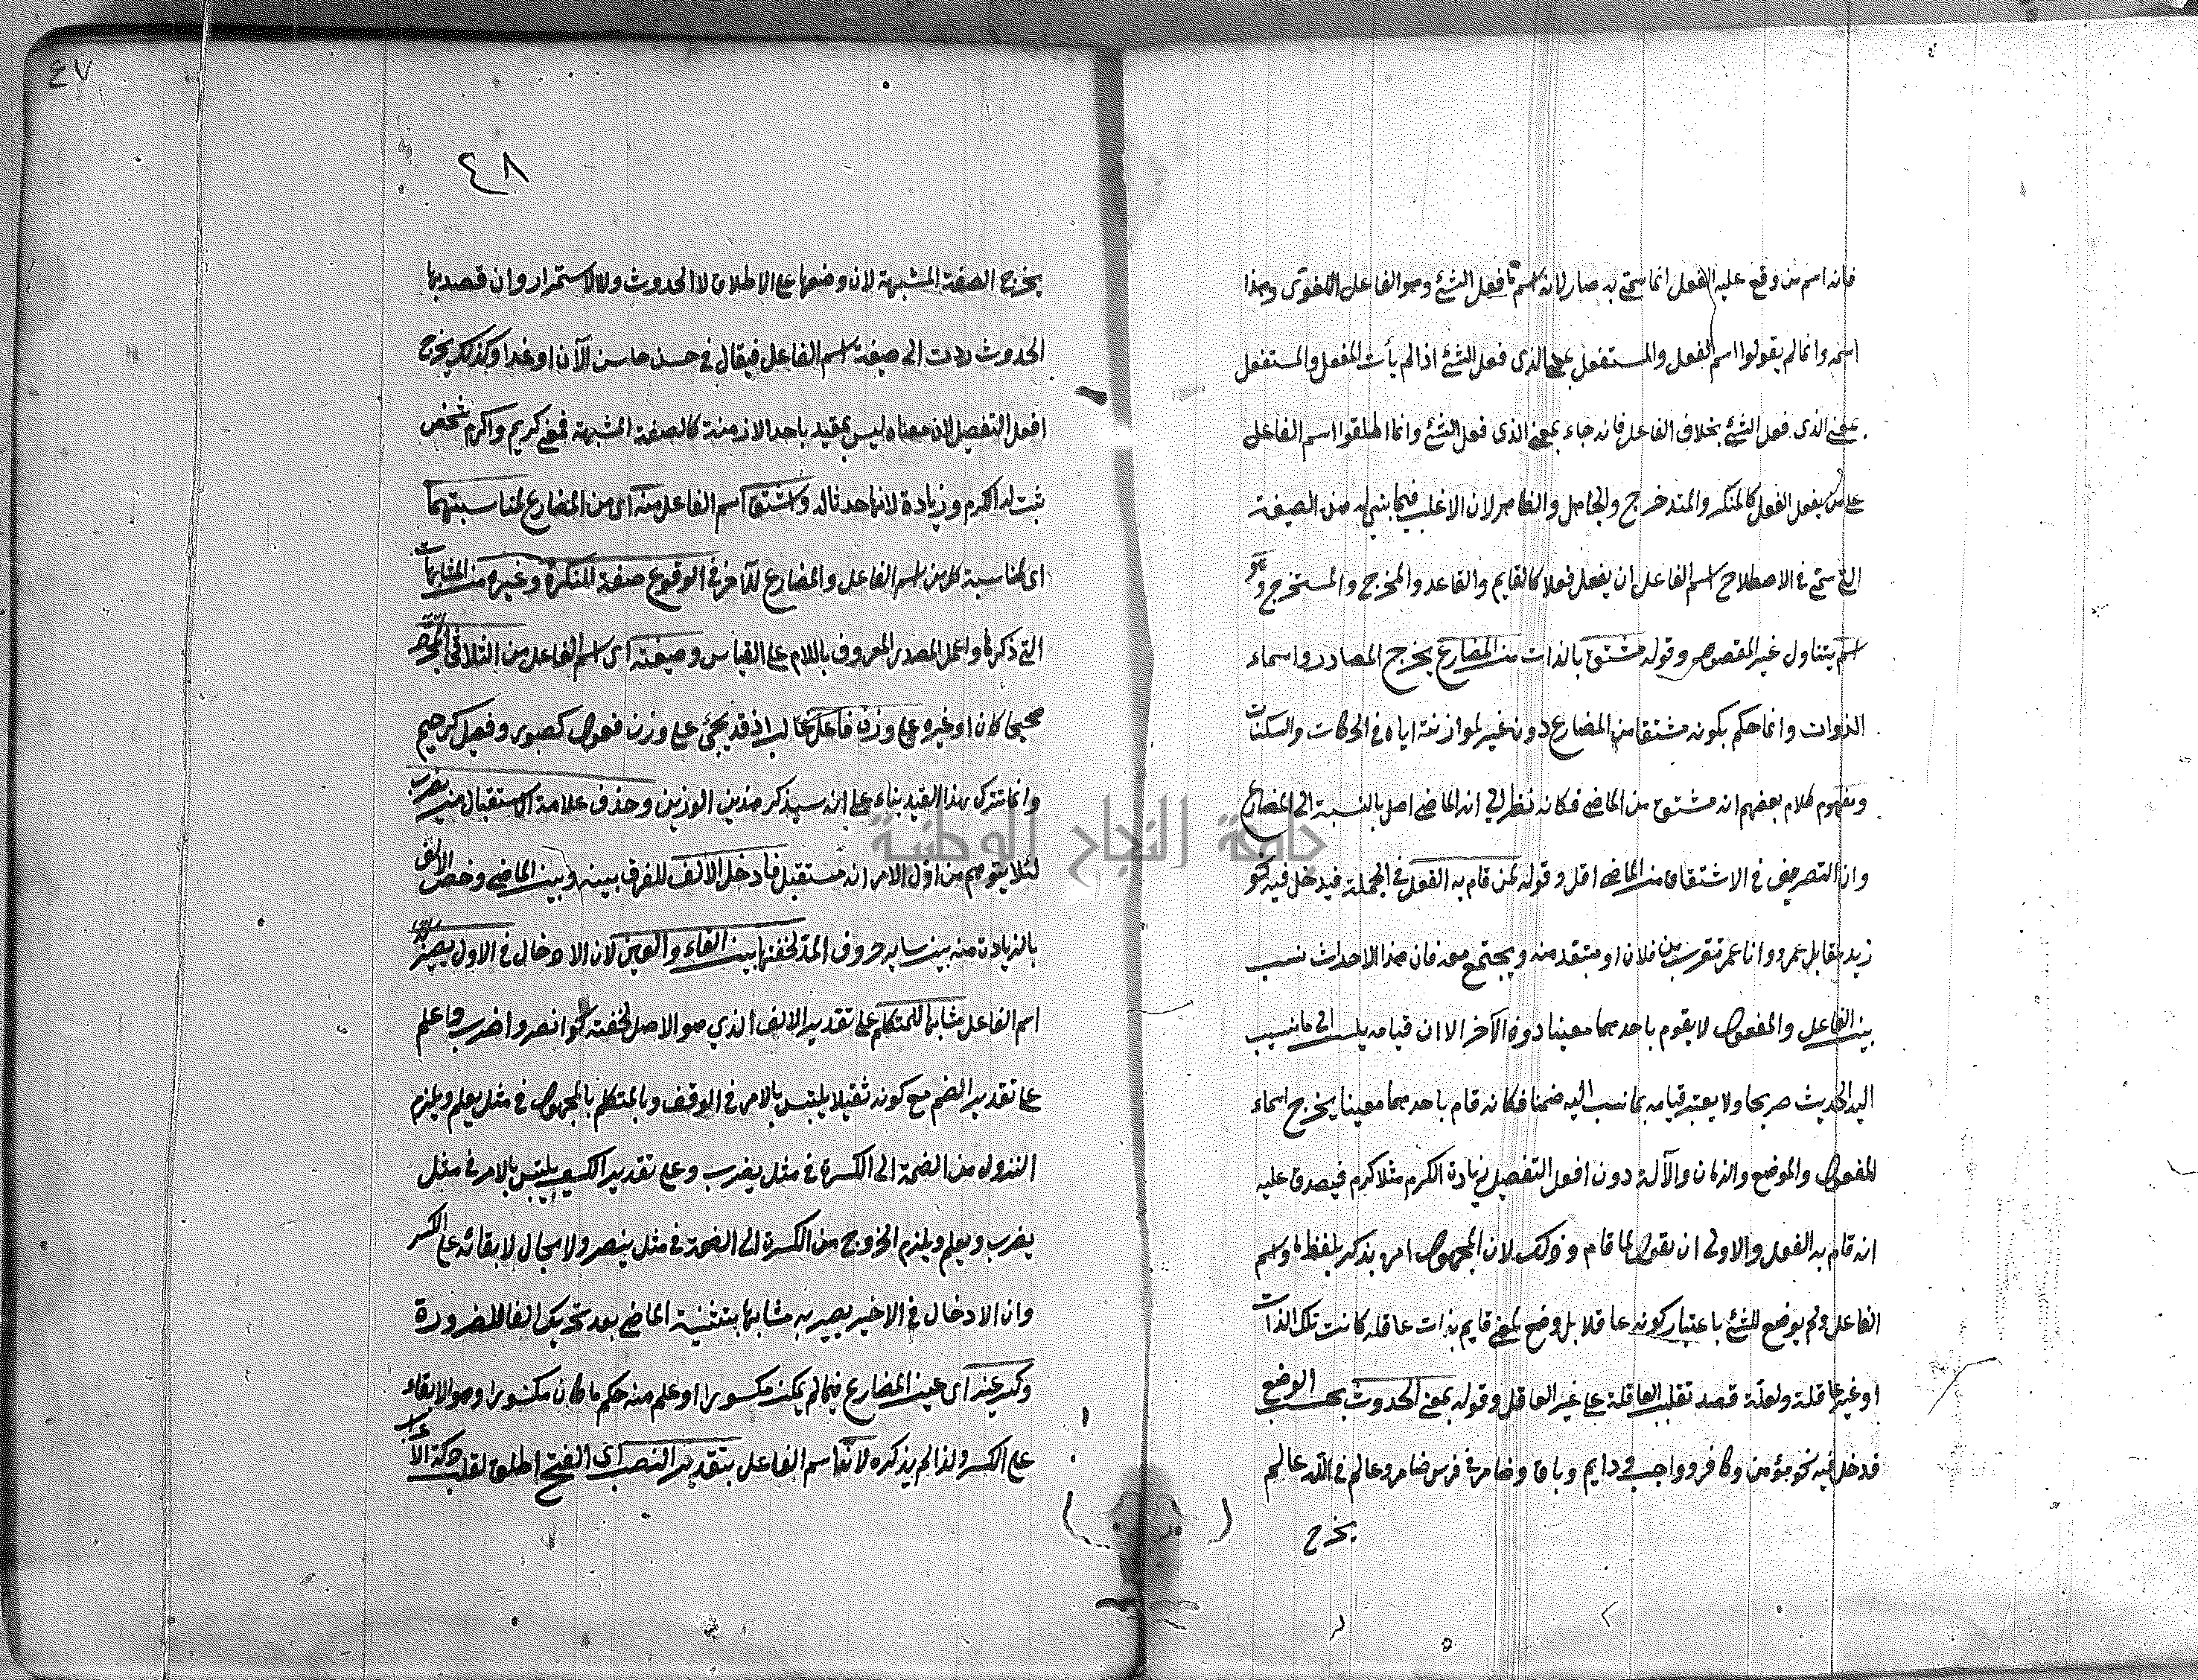 فانه اسم من وقع عليه الفعل انما سمى به صار لانه اسم ما فعل الشئ وهو الفاعل اللغوى وهذا
اسمه وانما لم يقولوا اسم المفعل والمستفعل بمعنى الذى فعل الشئ اذ لم يأت المفعل والمستفعل
بمعنى الذى فعل الشئ بخلاف الفاعل فانه جاء بمعنى الذى فعل الشئ وانما اطلقوا اسم الفاعل
على من يفعل الفعل كالمنكسر والمتدحرج والجاهل والضامر لان الاغلب فيما بنى له من الصيغة
التى سمى فى الاصطلاح اسم الفاعل ان يفعل فعلا كالقايم والقاعد والمخرج والمستخرج وهو
اسم يتناول غير المقصود وقوله مشتق بالذات من المضارع يخرج المصادر واسماء
الذوات وانما حكم بكونه مشتقا من المضارع دون غيره لموازنته اياه فى الحركات والسكنات
ومفهوم كلام بعضهم انه مشتق من الماضى فكانه نظر الى انه الماضى اصل بالنسبة الى المضارع
وان التصريف فى الاشتقاق من الماضى اقل وقوله لمن قام به الفعل فى الجملة فيدخل فيه نحو
زيد مقابل عمرو وانا عمر تقرب من فلان او مبتعد منه ويجتمع معه فان هذا الاحداث نسب
بين الفاعل والمفعول لا يقوم باحدهما معينا دون الآخر الا ان قيامه الى ما ينسب
اليه الحديث صريحا ولا يعتبر قيامه بما نسب اليه ضمنا فكانه قام باحدهما معينا يخرج اسماء
المفعول والموضع والزمان والآلة دون افعل التفضيل بزيادة الكرم مثلا كرم فيصدق عليه
انه قام به الفعل والاولى ان يقول لما قام وذلك لان المجهول امره يذكر بلفظ ما واسم
الفاعل ولم يوضع للشئ باعتبار كونه عاقلا بل وضع لمعنى قايم بذات عاقلة كانت تلك الذات
او غير عاقلة ولعله قصد تغليب العاقلة على غير العاقل وقوله بمعنى الحدوث بحسب الوضع
فدخل فيه نحو مؤمن وكافر وواجب فى دايم وباق وضامر فى فرس ضامر وعالم فى الله عالم
يخرج
٤٧
٤٨
يخرج الصفة المشبهة لان وضعها على الاطلاق لا الحدوث ولا الاستمرار وان قصد بها
الحدوث ردت الى صيغة اسم الفاعل فيقال فى حسن حاسن الآن او غدا وكذلك يخرج
افعل التفضيل لان معناه ليس بمقيد باحد الازمنة كالصفة المشبهة فمعنى كريم واكرم شخص
ثبت له الكرم وزيادة لانها حدثا له واشتق اسم الفاعل منه اى من المضارع لمناسبتهما
اى لمناسبة كل من اسم الفاعل والمضارع للآخر فى الوقوع صفة للنكرة وغيره من المشابهات
التى ذكرها واعمل المصدر المعروف باللام على القياس وصيغته اى اسم الفاعل من الثلاثى المجرد
صحيحا كان او غيره على وزن فاعل غالبا اذ قد يجئ على وزن فعول كصبور وفعيل كرحيم
وانما ترك هذا القيد بناء على انه سيذكر هذين الوزنين وحذف علامة الاستقبال من يضرب
لئلا يتوهم من اول الامر انه مستقبل فادخل الالف للفرق بينه وبين الماضى وخص الالف
بالزيادة من بين ساير حروف المد لخفتها بين الفاء والعين لان الادخال فى الاول يصير
اسم الفاعل مشابها للمتكلم على تقدير الالف الذي هو الاصل لخفته نحو انصر واضرب واعلم
على تقدير الضم مع كونه ثقيلا يلتبس بالامر فى الوقف وبالمتكلم بالمجهول فى مثل يعلم ويلزم
النزول من الضمة الى الكسرة فى مثل يضرب وعلى تقدير الكسر يلتبس بالامر فى مثل
يضرب ويعلم ويلزم الخروج من الكسرة الى الضمة فى مثل ينصر ولا مجال لابقائه على الكسر
وان الادخال فى الاخير يصير به مشابها بتثنية الماضى بعد تحريك الفا للضرورة
وكسر عينه اى عين المضارع فيما لم يكن مكسورا او علم منه حكم ما كان مكسورا وهو الابقاء
على الكسر ولذا لم يذكره لان اسم الفاعل بتقدير النصب اى الفتح اطلق لقب حركة الاعراب
جامعة النجاح الوطنية